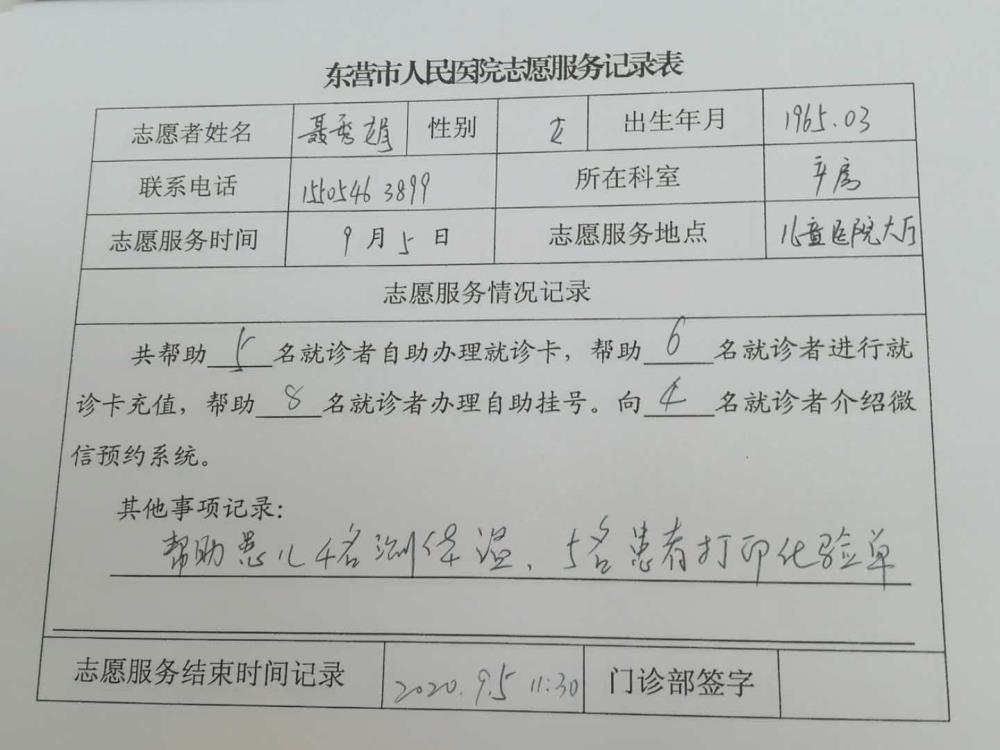 东营市人民医院志愿服务记录表
志愿者姓名 聂秀娟 性别 女 出生年月 1965.03
联系电话 15505463899 所在科室
志愿服务时间 9月5日 志愿服务地点 儿童医院大厅
志愿服务情况记录
共帮助5名就诊者自助办理就诊卡，帮助6名就诊者进行就
诊卡充值，帮助8名就诊者办理自助挂号。向4名就诊者介绍微
信预约系统。
其他事项记录：
帮助患儿4名测体温、5名患者打印化验单
志愿服务结束时间记录 2020.9.5 11:30 门诊部签字